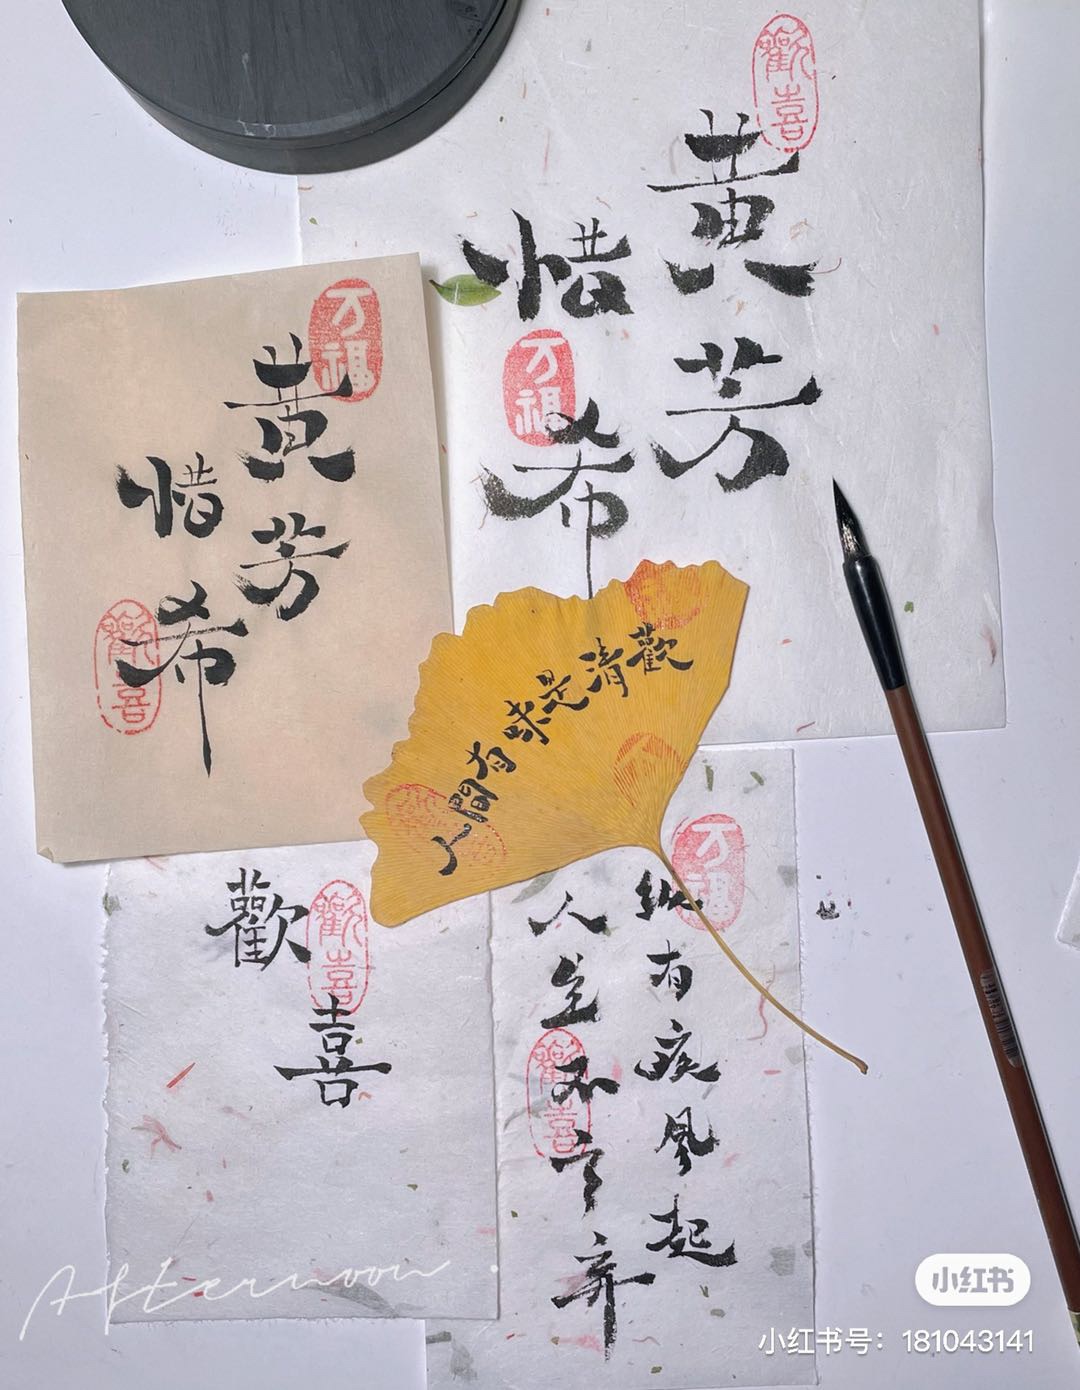 歡喜
黄芳
惜希
万福
万福
黄芳
惜希
歡喜
人間有味是清歡
歡喜
歡喜
万福
纵有疾风起
人生不言弃
歡喜
Afternoon.
小红书
小红书号：181043141